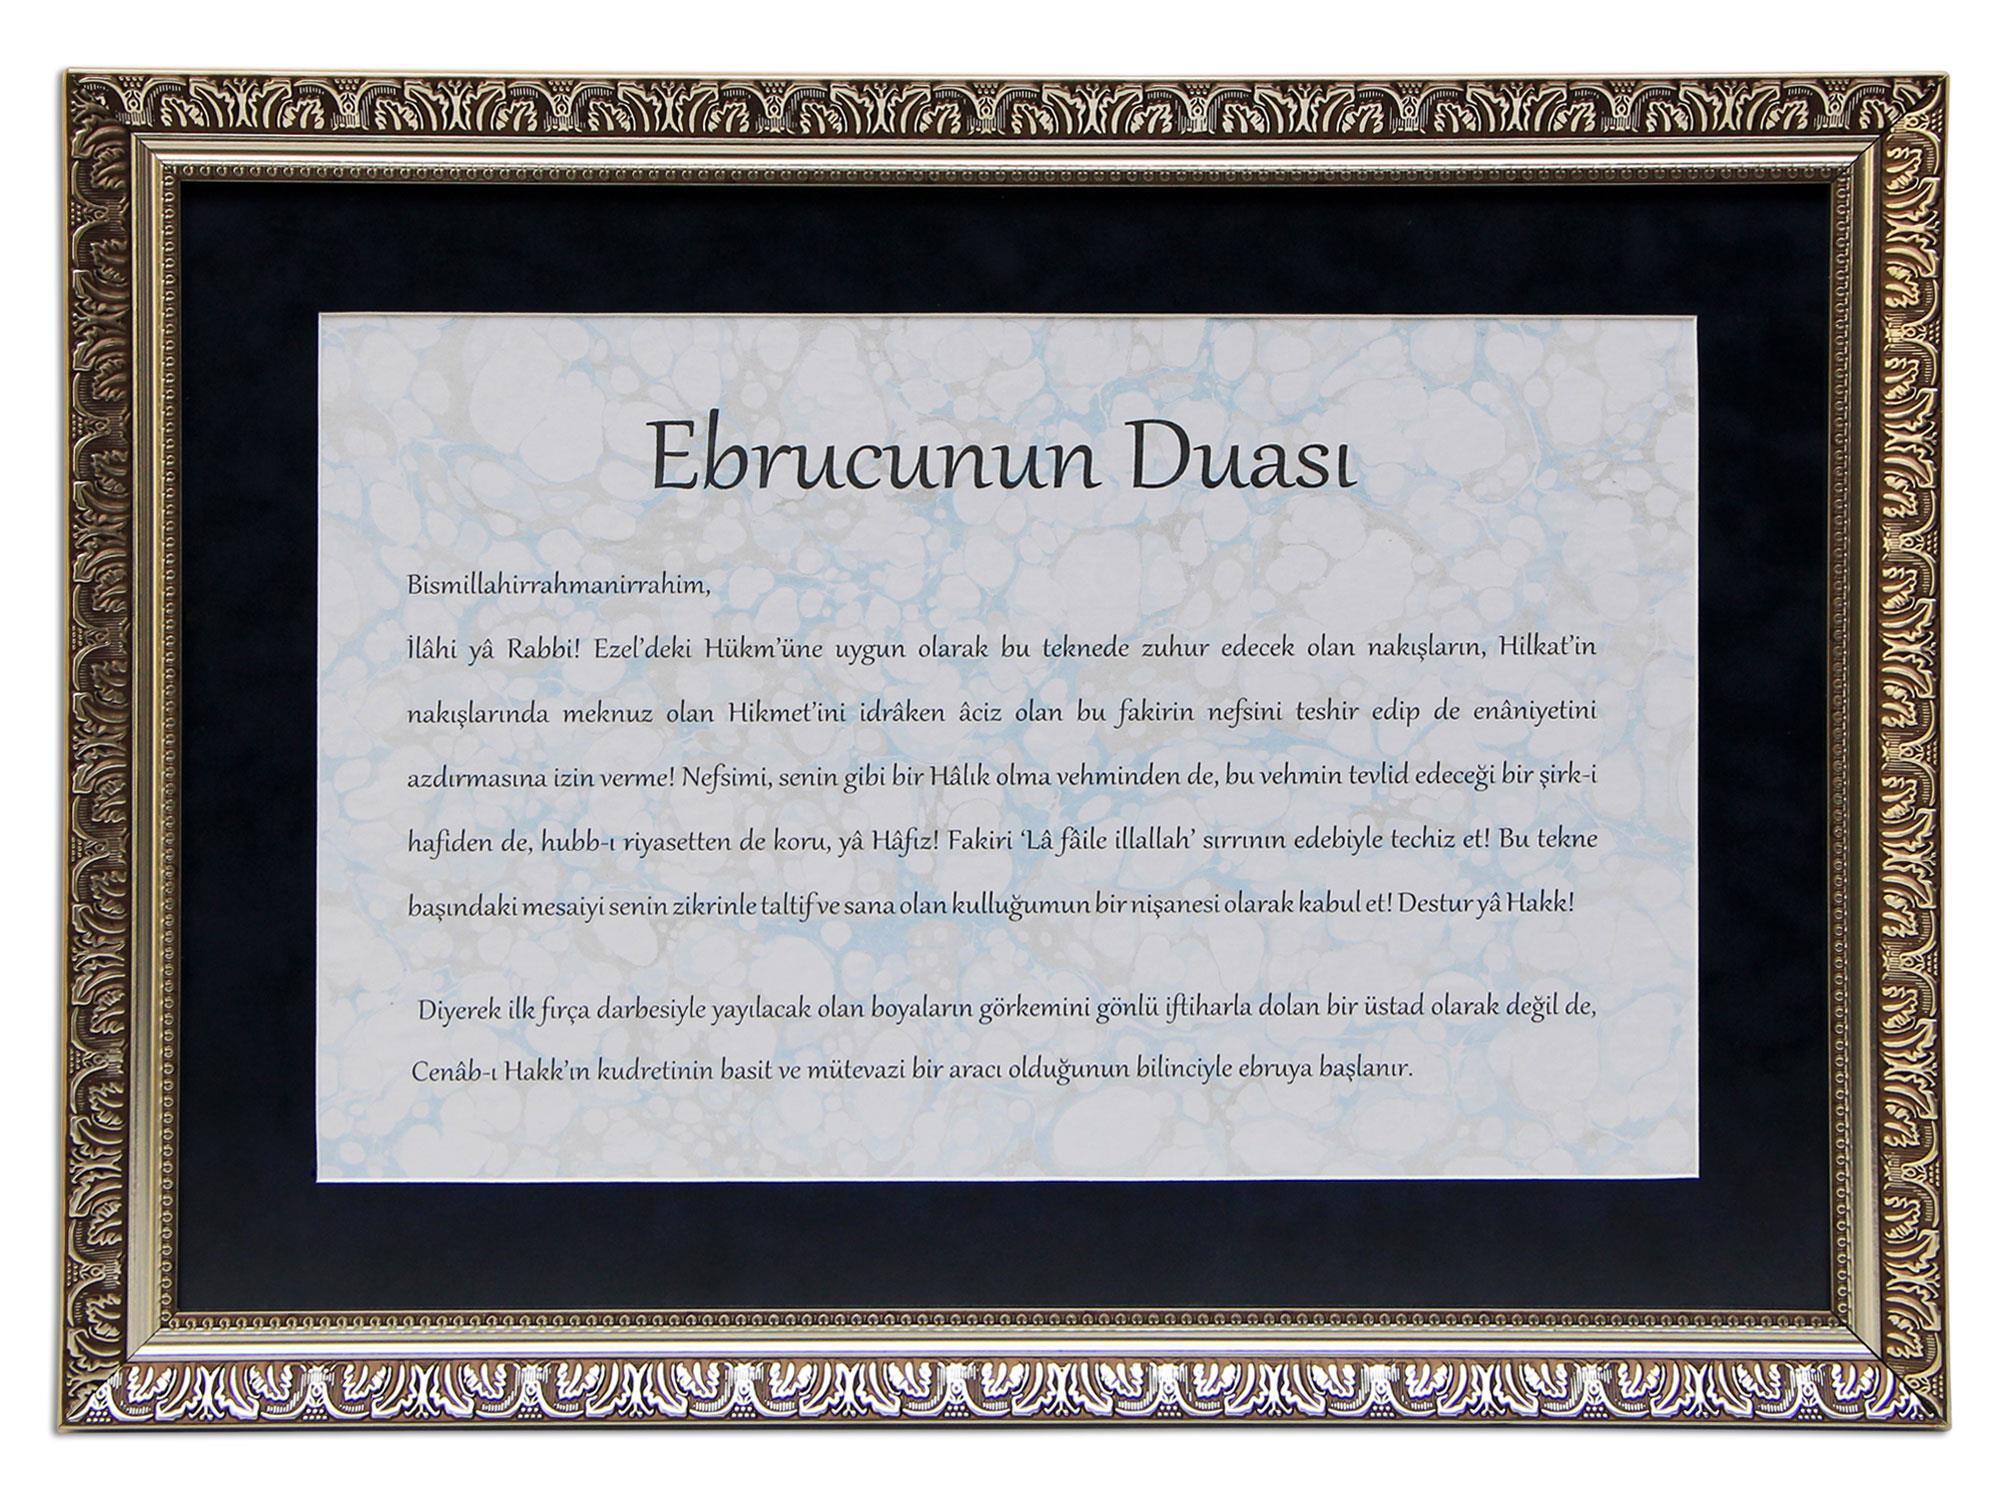 Ebrucunun Duası
Bismillahirrahmanirrahim,
İlâhi yâ Rabbi! Ezel'deki Hükm'üne uygun olarak bu teknede zuhur edecek olan nakışların, Hilkat'in
nakışlarında meknuz olan Hikmet'ini idrâken âciz olan bu fakirin nefsini teshir edip de enâniyetini
azdırmasına izin verme! Nefsimi, senin gibi bir Hâlık olma vehminden de, bu vehmin tevlid edeceği bir şirk-i
hafiden de, hubb-ı riyasetten de koru, yâ Hâfız! Fakiri 'Lâ fâile illallah' sırrının edebiyle techiz et! Bu tekne
başındaki mesaiyi senin zikrinle taltif ve sana olan kulluğumun bir nişanesi olarak kabul et! Destur yâ Hakk!
Diyerek ilk fırça darbesiyle yayılacak olan boyaların görkemini gönlü iftiharla dolan bir üstad olarak değil de,
Cenâb-ı Hakk'ın kudretinin basit ve mütevazi bir aracı olduğunun bilinciyle ebruya başlanır.